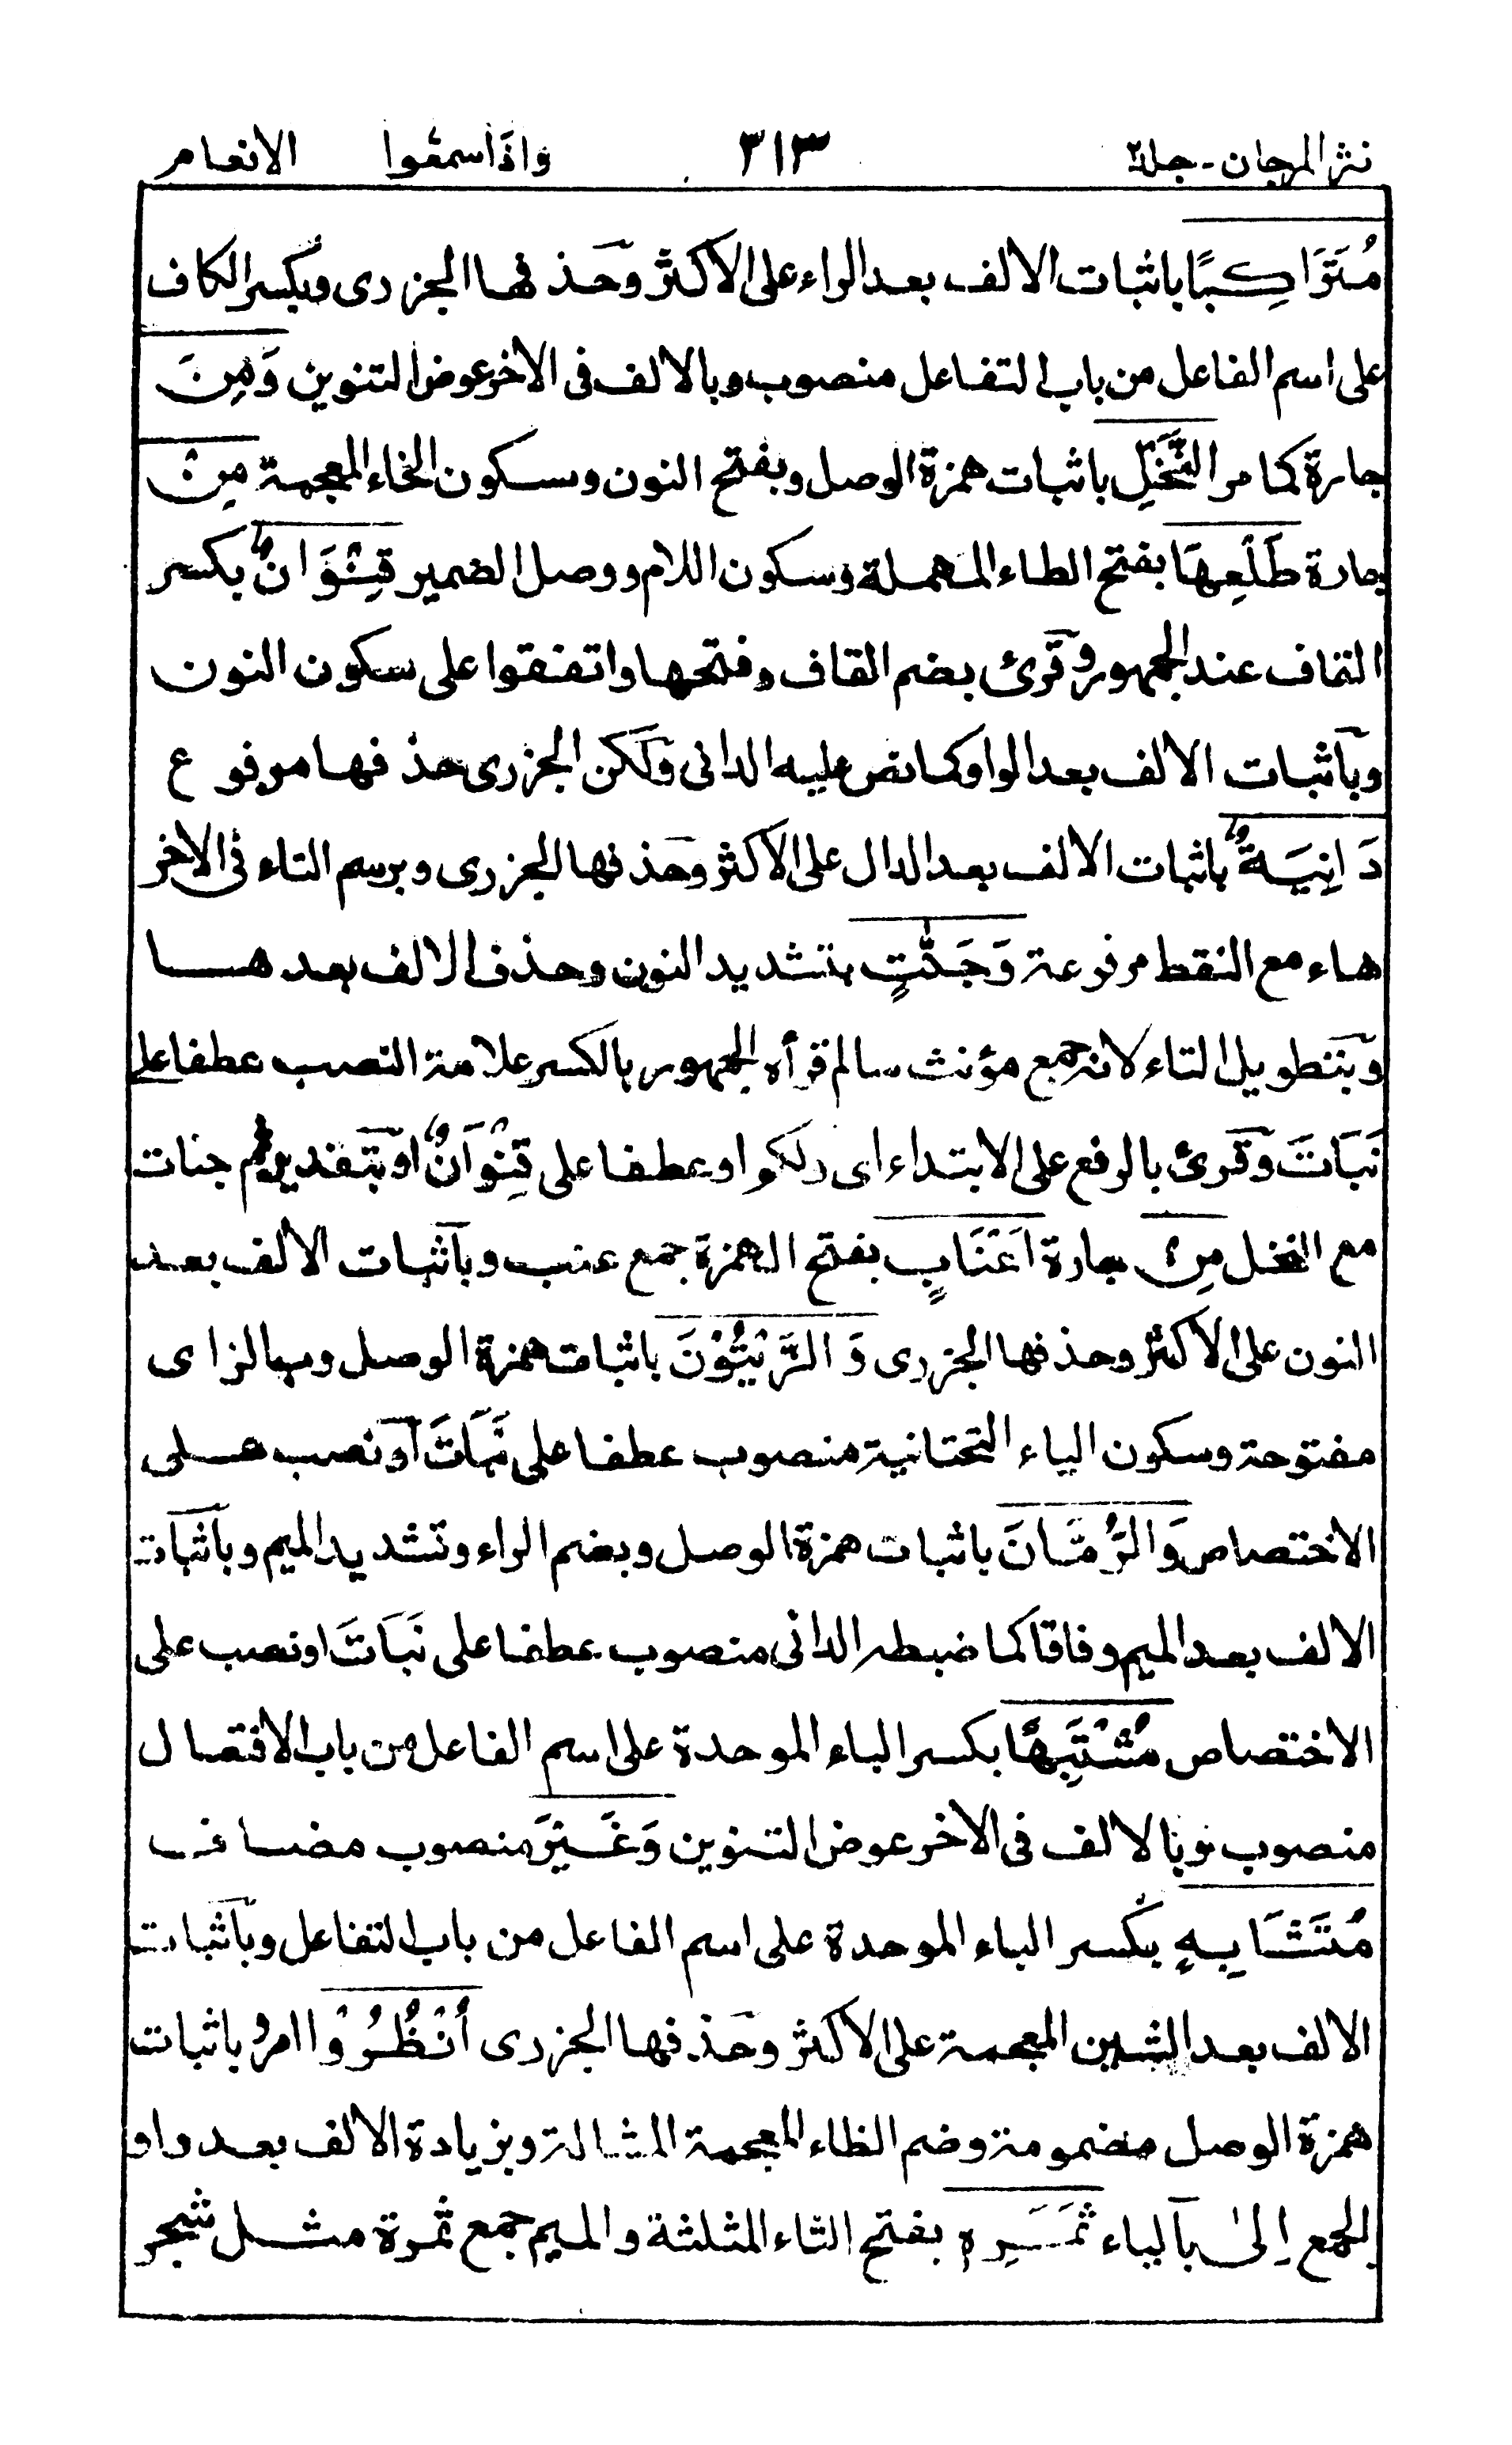 نثر المرجان - جلد ٢ ٣١٣ واذا سمعوا الانعام
مُتَرَاكِبًا باثبات الالف بعد الراء على الاكثر وحذفها الجزرى وبكسر الكاف
على اسم الفاعل من باب التفاعل منصوب وبالالف فى الاخر عوض التنوين وَمِنَ
جارة كما مر النَّخْلِ باثبات همزة الوصل وبفتح النون وسكون الخاء المعجمة مِنْ
جارة طَلْعِهَا بفتح الطاء المهملة وسكون اللام ووصل الضمير قِنْوَانٌ بكسر
القاف عند الجمهور وقرئ بضم القاف وفتحها واتفقوا على سكون النون
وباثبات الالف بعد الواو كما نص عليه الدانى ولكن الجزرى حذفها مرفوع
دَانِيَةٌ باثبات الالف بعد الدال على الاكثر وحذفها الجزرى وبرسم التاء فى الاخر
هاء مع النقط مرفوعة وَجَنّٰتٍ بتشديد النون وحذف الالف بعدها
وبتطويل التاء لانه جمع مؤنث سالم قرأه الجمهور بالكسر علامة النصب عطفا على
نَبَاتَ وقرئ بالرفع على الابتداء اى ولكم او عطفا على قِنْوَانٌ او بتقدير لهم جنات
مع النخل مِنْ جارة اَعْنَابٍ بفتح الهمزة جمع عنب وباثبات الالف بعد
النون على الاكثر وحذفها الجزرى وَالزَّيْتُوْنَ باثبات همزة الوصل وبالزاى
مفتوحة وسكون الياء التحتانية منصوب عطفا على نَبَاتَ او نصب على
الاختصاص وَالرُّمَّانَ باثبات همزة الوصل وبضم الراء وتشديد الميم وباثبات
الالف بعد الميم وفاقا كما ضبطه الدانى منصوب عطفا على نَبَاتَ او نصب على
الاختصاص مُشْتَبِهًا بكسر الباء الموحدة على اسم الفاعل من باب الافتعال
منصوب وبالالف فى الاخر عوض التنوين وَغَيْرَ منصوب مضاف
مُتَشَابِهٍ بكسر الباء الموحدة على اسم الفاعل من باب التفاعل وباثبات
الالف بعد الشين المعجمة على الاكثر وحذفها الجزرى اُنْظُرُوْا امر وباثبات
همزة الوصل مضمومة وضم الظاء المعجمة المشالة وبزيادة الالف بعد واو
الجمع اِلىٰ بالياء ثَمَرِهٖ بفتح الثاء المثلثة والميم جمع ثمرة مثل شجر